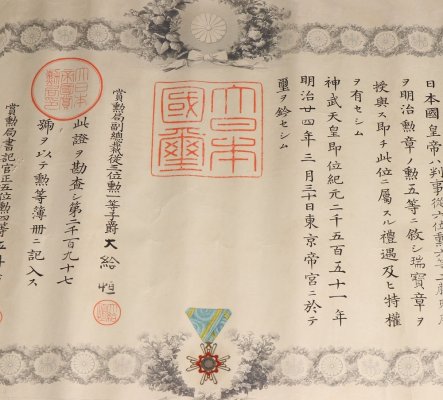 日本國皇帝ハ判事從六位勳六等
ヲ明治勳章ノ勳五等ニ敘シ瑞寶章ヲ
授與ス即チ此位ニ屬スル禮遇及ヒ特權
ヲ有セシム
神武天皇即位紀元二千五百五十一年
明治廿四年三月三十日東京帝宮ニ於テ
璽ヲ鈐セシム
大日本
國璽
賞勳局副總裁從三位勳一等子爵大給恒
此證ヲ勘査シ第二千百九十七
號ヲ以テ勳等簿册ニ記入ス
賞勳局書記官正五位勳四等